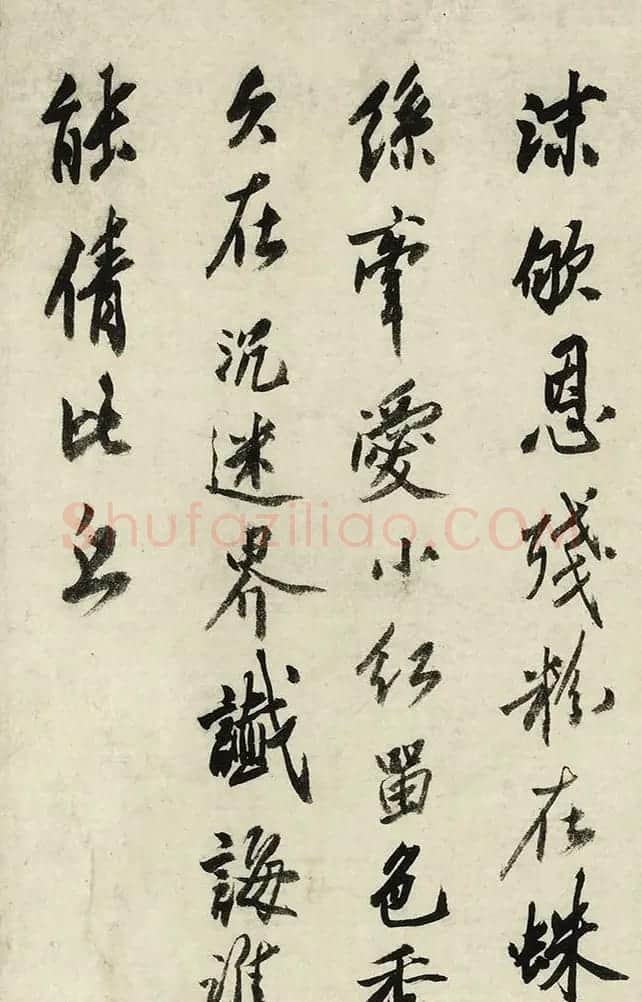 沫恩殘粉在蛛
絲牽愛小紅畱色香
久在沉迷界讖誨誰
能倩比丘
Shufaziliao.COM